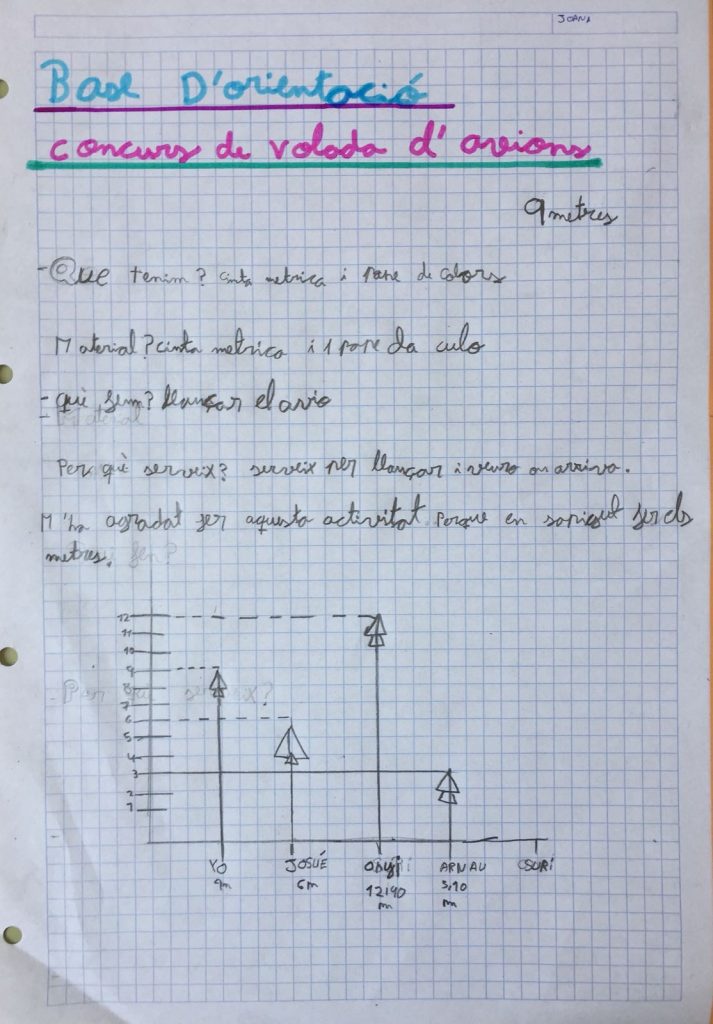 JOANA
Base D'orientació
concurs de volada d'avions
9 metres
-Que tenim? cinta metrica i pape de colors
Material? cinta metrica i 1 pape da culo
- què fem? llançar el avio
Material
Per què serveix? serveix per llançar i veuro on arriva.
M'ha agradat fer aquesta activitat porque en sapigut fer els
metres. fen?
12
11
10
9
8
- Per què serveix?
7
6
5
4
3
2
1
YO JOSUÉ ARNAU
9m 6m 12,90 3,10
m m